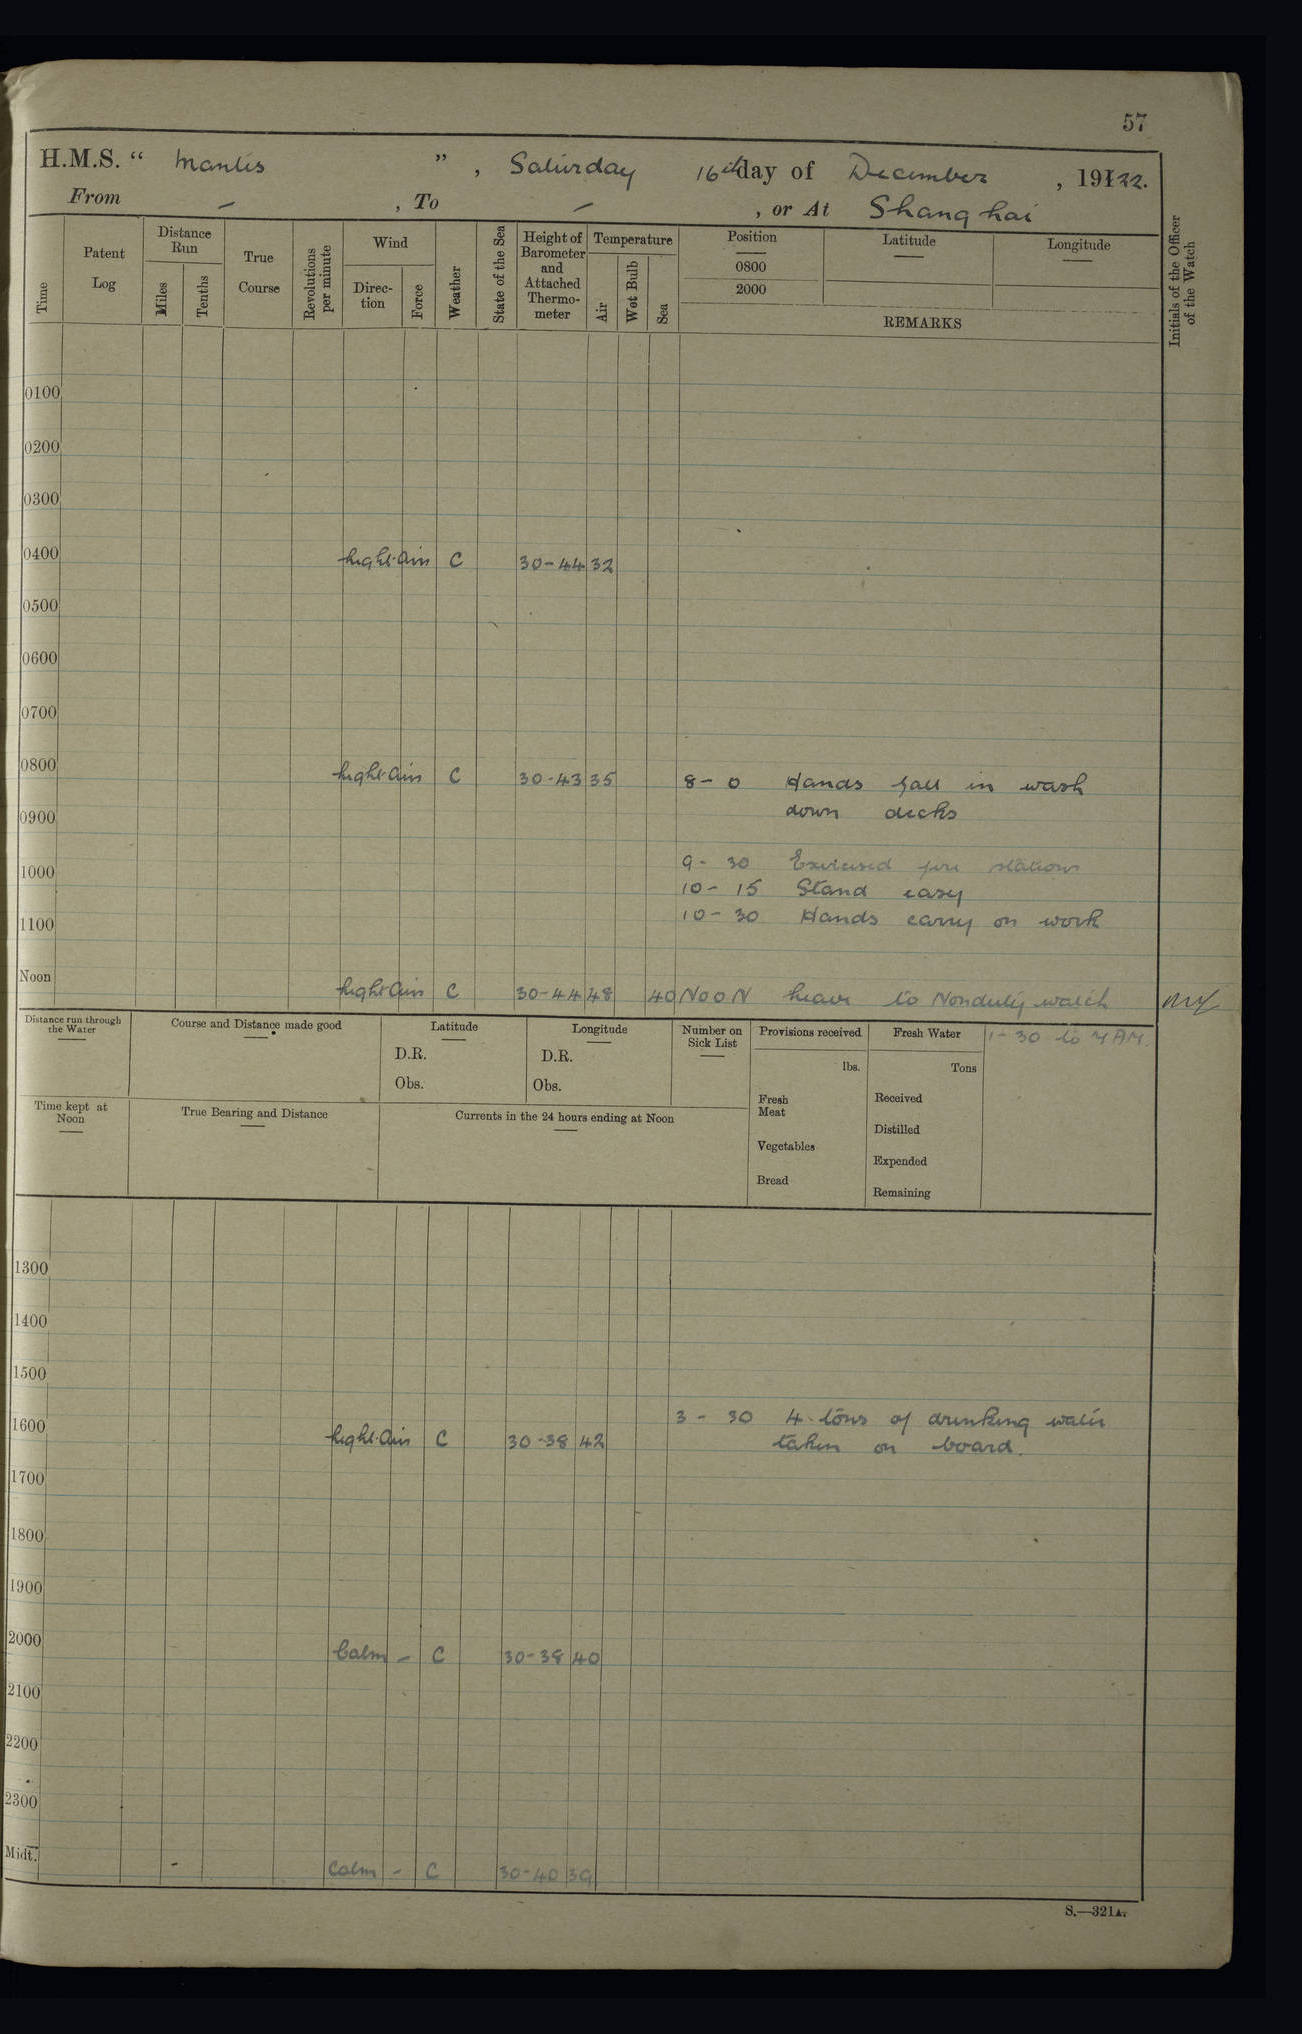 57
H.M.S. " Mantis ", Saturday 16th day of December, 1922.
From — , To — , or At Shanghai
Time
Patent Log
Distance Run
Miles
Tenths
True Course
Revolutions per minute
Wind
Direction
Force
Weather
State of the Sea
Height of Barometer and Attached Thermometer
Temperature
Air
Wet Bulb
Sea
Position
0800
2000
Latitude
Longitude
REMARKS
Initials of the Officer of the Watch
0100
0200
0300
0400 Light Airs C 30-44 32
0500
0600
0700
0800 Light Airs C 30-43 35 8-0 Hands fall in wash
down decks
0900
9-30 Exercised fire stations
1000
10-15 Stand easy
10-30 Hands carry on work
1100
Noon Light Airs C 30-44 48 40 NOON Leave to Nonduty watch
1-30 to 7 AM.
Distance run through the Water
Course and Distance made good
Latitude
D.R.
Obs.
Longitude
D.R.
Obs.
Number on Sick List
Provisions received
lbs.
Fresh Meat
Vegetables
Bread
Fresh Water
Tons
Received
Distilled
Expended
Remaining
Time kept at Noon
True Bearing and Distance
Currents in the 24 hours ending at Noon
1300
1400
1500
3-30 4 tons of drinking water
taken on board.
1600 Light Airs C 30-38 42
1700
1800
1900
2000 Calm - C 30-38 40
2100
2200
2300
Midt. Calm - C 30-40 39
S.—321A.